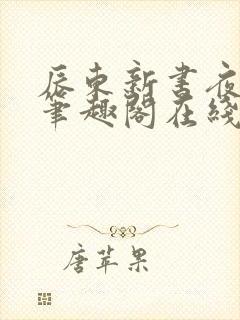 辰东新书夜
笔趣阁在线
唐苹果